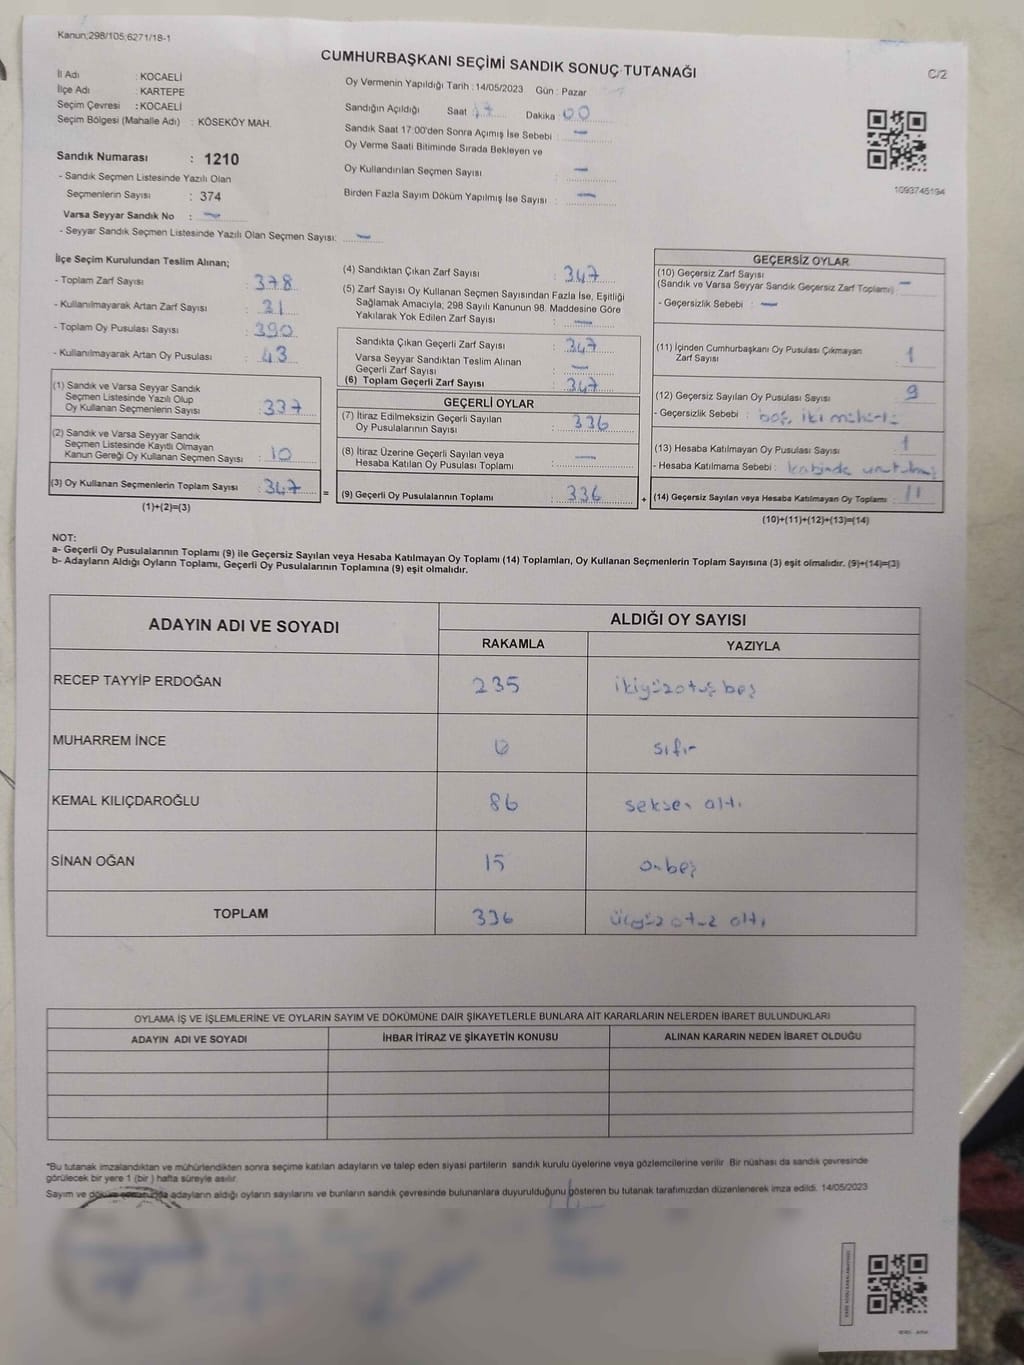 Kanun;298/105;6271/18-1
CUMHURBAŞKANI SEÇİMİ SANDIK SONUÇ TUTANAĞI
C/2
İl Adı : KOCAELİ
İlçe Adı : KARTEPE
Seçim Çevresi : KOCAELİ
Seçim Bölgesi (Mahalle Adı) : KÖSEKÖY MAH.
Oy Vermenin Yapıldığı Tarih : 14/05/2023 Gün : Pazar
Sandığın Açıldığı Saat : 17 Dakika : 00
Sandık Saat 17:00'den Sonra Açımış İse Sebebi : —
Oy Verme Saati Bitiminde Sırada Bekleyen ve
Oy Kullandırılan Seçmen Sayısı : —
Birden Fazla Sayım Döküm Yapılmış İse Sayısı : —
1093745194
Sandık Numarası : 1210
- Sandık Seçmen Listesinde Yazılı Olan
Seçmenlerin Sayısı : 374
Varsa Seyyar Sandık No : —
- Seyyar Sandık Seçmen Listesinde Yazılı Olan Seçmen Sayısı: —
İlçe Seçim Kurulundan Teslim Alınan;
- Toplam Zarf Sayısı : 378
- Kullanılmayarak Artan Zarf Sayısı : 31
- Toplam Oy Pusulası Sayısı : 390
- Kullanılmayarak Artan Oy Pusulası : 43
(1) Sandık ve Varsa Seyyar Sandık
Seçmen Listesinde Yazılı Olup
Oy Kullanan Seçmenlerin Sayısı : 337
(2) Sandık ve Varsa Seyyar Sandık
Seçmen Listesinde Kayıtlı Olmayan
Kanun Gereği Oy Kullanan Seçmen Sayısı : 10
(3) Oy Kullanan Seçmenlerin Toplam Sayısı : 347
(1)+(2)=(3)
=
(4) Sandıktan Çıkan Zarf Sayısı : 347
(5) Zarf Sayısı Oy Kullanan Seçmen Sayısından Fazla İse, Eşitliği
Sağlamak Amacıyla; 298 Sayılı Kanunun 98. Maddesine Göre
Yakılarak Yok Edilen Zarf Sayısı : —
Sandıkta Çıkan Geçerli Zarf Sayısı : 347
Varsa Seyyar Sandıktan Teslim Alınan
Geçerli Zarf Sayısı : —
(6) Toplam Geçerli Zarf Sayısı : 347
GEÇERLİ OYLAR
(7) İtiraz Edilmeksizin Geçerli Sayılan
Oy Pusulalarının Sayısı : 336
(8) İtiraz Üzerine Geçerli Sayılan veya
Hesaba Katılan Oy Pusulası Toplamı : —
(9) Geçerli Oy Pusulalarının Toplamı : 336
+
GEÇERSİZ OYLAR
(10) Geçersiz Zarf Sayısı
(Sandık ve Varsa Seyyar Sandık Geçersiz Zarf Toplamı) : —
- Geçersizlik Sebebi : —
(11) İçinden Cumhurbaşkanı Oy Pusulası Çıkmayan
Zarf Sayısı : 1
(12) Geçersiz Sayılan Oy Pusulası Sayısı : 9
- Geçersizlik Sebebi : boş, iki mühürlü
(13) Hesaba Katılmayan Oy Pusulası Sayısı : 1
- Hesaba Katılmama Sebebi : kabinde unutulmuş
(14) Geçersiz Sayılan veya Hesaba Katılmayan Oy Toplamı : 11
(10)+(11)+(12)+(13)=(14)
NOT:
a- Geçerli Oy Pusulalarının Toplamı (9) ile Geçersiz Sayılan veya Hesaba Katılmayan Oy Toplamı (14) Toplamları, Oy Kullanan Seçmenlerin Toplam Sayısına (3) eşit olmalıdır. (9)+(14)=(3)
b- Adayların Aldığı Oyların Toplamı, Geçerli Oy Pusulalarının Toplamına (9) eşit olmalıdır.
ADAYIN ADI VE SOYADI ALDIĞI OY SAYISI
RAKAMLA YAZIYLA
RECEP TAYYİP ERDOĞAN 235 ikiyüzotuz beş
MUHARREM İNCE 0 sıfır
KEMAL KILIÇDAROĞLU 86 seksen altı
SİNAN OĞAN 15 onbeş
TOPLAM 336 üçyüz otuz altı
OYLAMA İŞ VE İŞLEMLERİNE VE OYLARIN SAYIM VE DÖKÜMÜNE DAİR ŞİKAYETLERLE BUNLARA AİT KARARLARIN NELERDEN İBARET BULUNDUKLARI
ADAYIN ADI VE SOYADI İHBAR İTİRAZ VE ŞİKAYETİN KONUSU ALINAN KARARIN NEDEN İBARET OLDUĞU
*Bu tutanak imzalandıktan ve mühürlendikten sonra seçime katılan adayların ve talep eden siyasi partilerin sandık kurulu üyelerine veya gözlemcilerine verilir. Bir nüshası da sandık çevresinde
görülecek bir yere 1 (bir) hafta süreyle asılır.
Sayım ve döküm sonucunda adayların aldığı oyların sayılarını ve bunların sandık çevresinde bulunanlara duyurulduğunu gösteren bu tutanak tarafımızdan düzenlenerek imza edildi. 14/05/2023